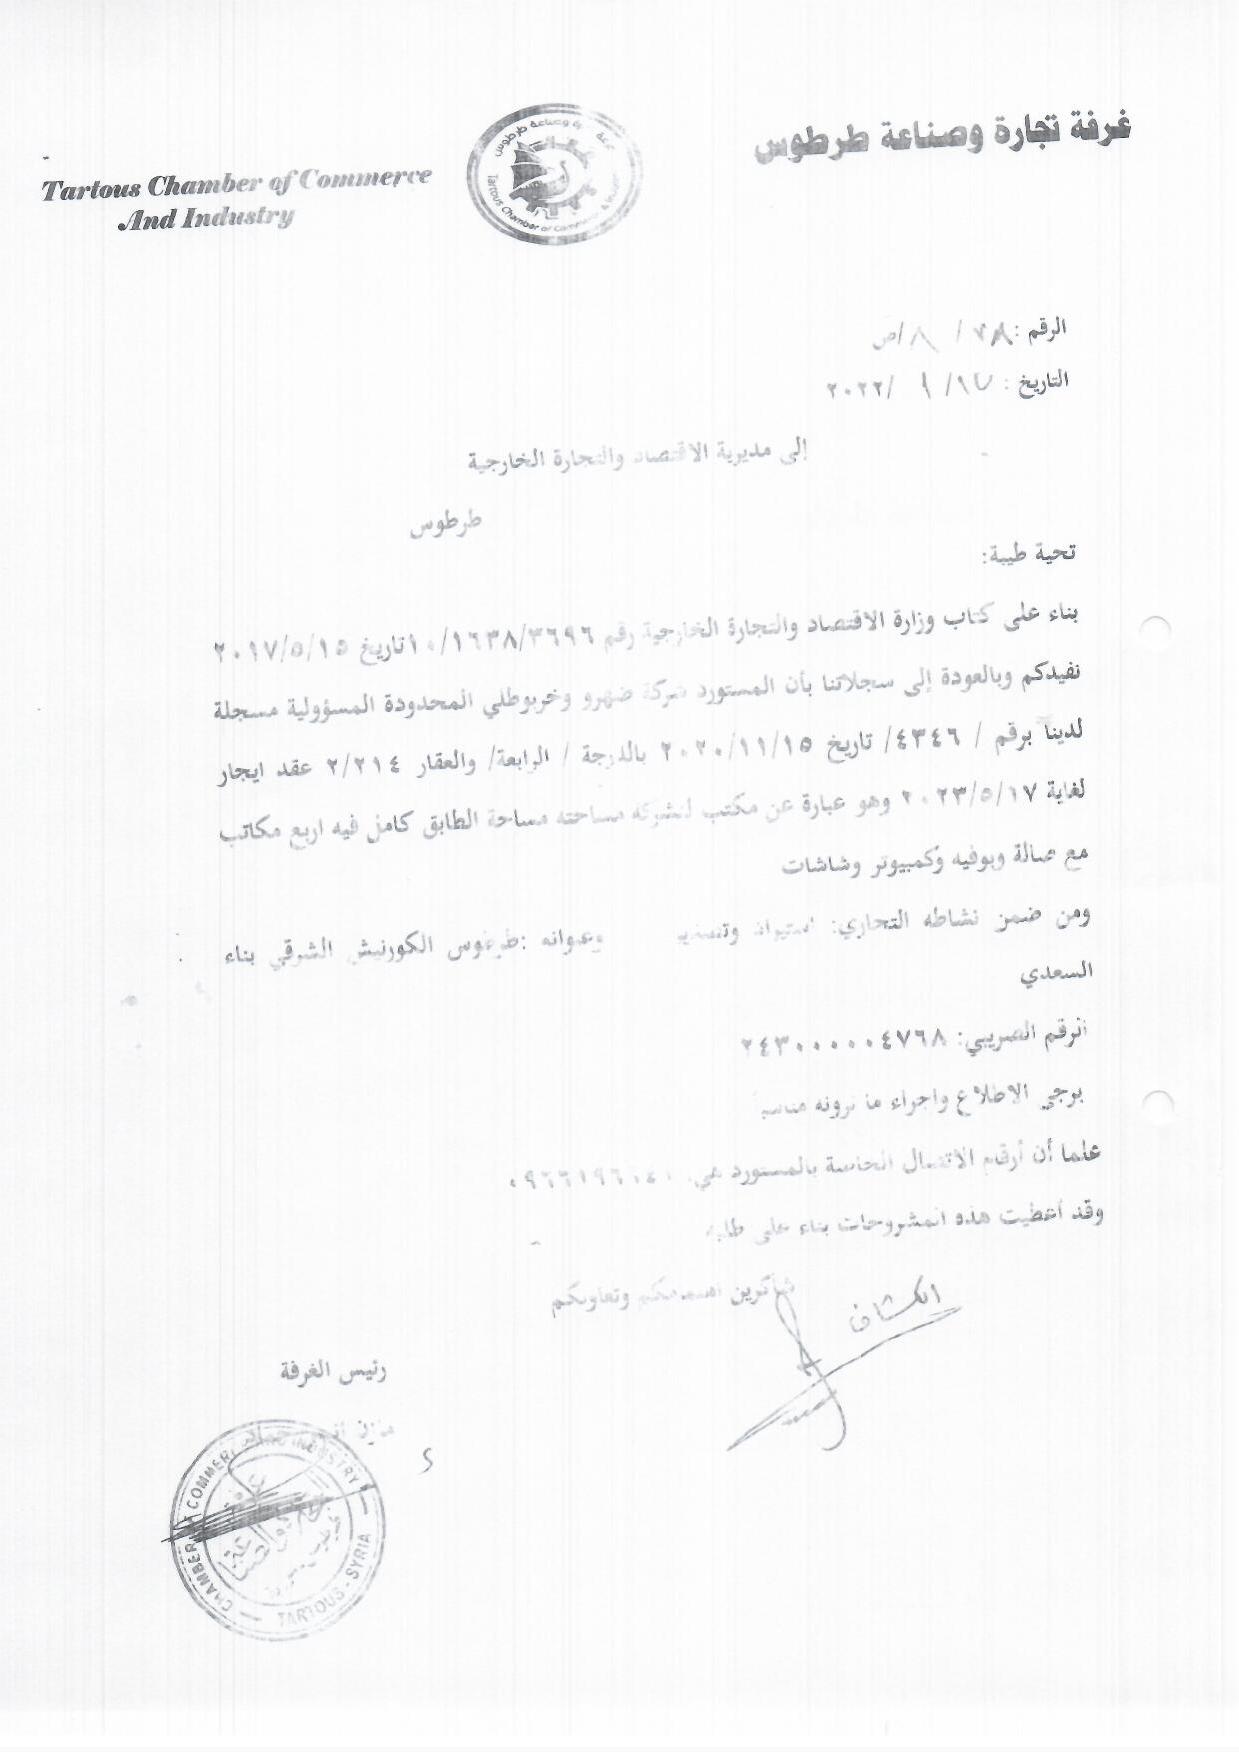 غرفة تجارة وصناعة طرطوس
Tartous Chamber of Commerce
And Industry
الرقم : ٧٨ / ٨ /ص
التاريخ : / ٢٠٢٢
إلى مديرية الاقتصاد والتجارة الخارجية
طرطوس
تحية طيبة:
بناء على كتاب وزارة الاقتصاد والتجارة الخارجية رقم ١٠/١٦٣٨/٣٦٩٦ تاريخ ٢٠١٧/٥/١٥
نفيدكم وبالعودة إلى سجلاتنا بأن المستورد شركة ضهرو وخربوطلي المحدودة المسؤولية مسجلة
لدينا برقم / ٤٣٤٦/ تاريخ ٢٠٢٠/١١/١٥ بالدرجة / الرابعة/ والعقار ٢/٢١٤ عقد ايجار
لغاية ٢٠٢٣/٥/١٧ وهو عبارة عن مكتب للشركة مساحته مساحة الطابق كامل فيه اربع مكاتب
مع صالة وبوفيه وكمبيوتر وشاشات
ومن ضمن نشاطه التجاري: استيراد وتصدير وعنوانه :طرطوس الكورنيش الشرقي بناء
السعدي
الرقم الضريبي: ٢٤٣٠٠٠٠٠٤٧٦٨
يرجى الاطلاع واجراء ما ترونه مناسبا
علما أن أرقام الاتصال الخاصة بالمستورد هي:
وقد أعطيت هذه المشروحات بناء على طلبه
شاكرين اهتمامكم وتعاونكم
الكشاف
رئيس الغرفة
مازن
CHAMBER OF COMMERCE AND INDUSTRY
TARTOUS - SYRIA